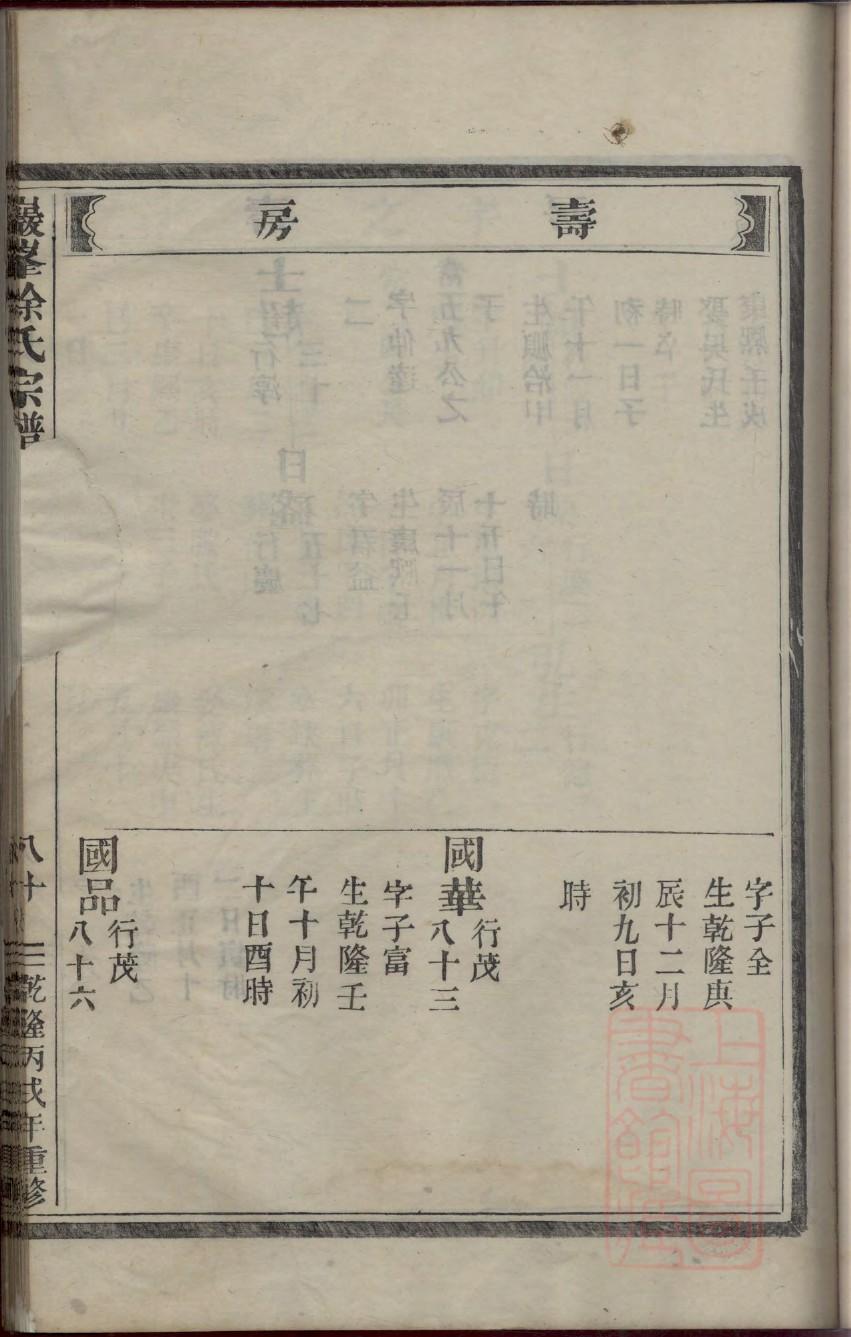 壽房
字子全
生乾隆庚
辰十二月
初九日亥
時
國華行茂
八十三
字子富
生乾隆壬
午十月初
十日酉時
國品行茂
八十六
巖峯徐氏宗譜
八十
乾隆丙戌年重修
上海圖
書館藏